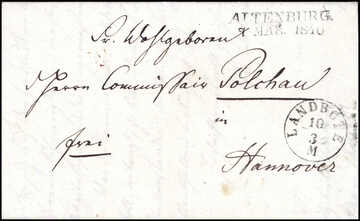 ALTENBURG
8 MAR. 1840
Sr. Wohlgeboren
Herrn Commissair Polchau
in
frei
Hannover
LANDBOTE
10
3
M